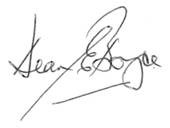 Sean E Boyce